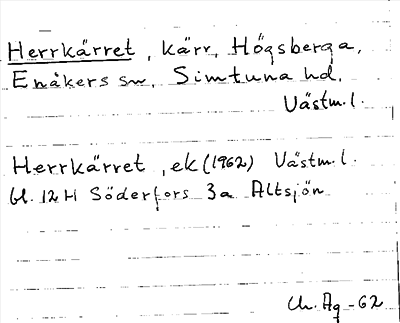 Herrkärret, kärr, Högsberga,
Enåkers sn, Simtuna hd,
Västm. l.
Herrkärret, ek (1962) Västm. l.
bl. 12 H Söderfors 3a Altsjön
Ch. Ag -62